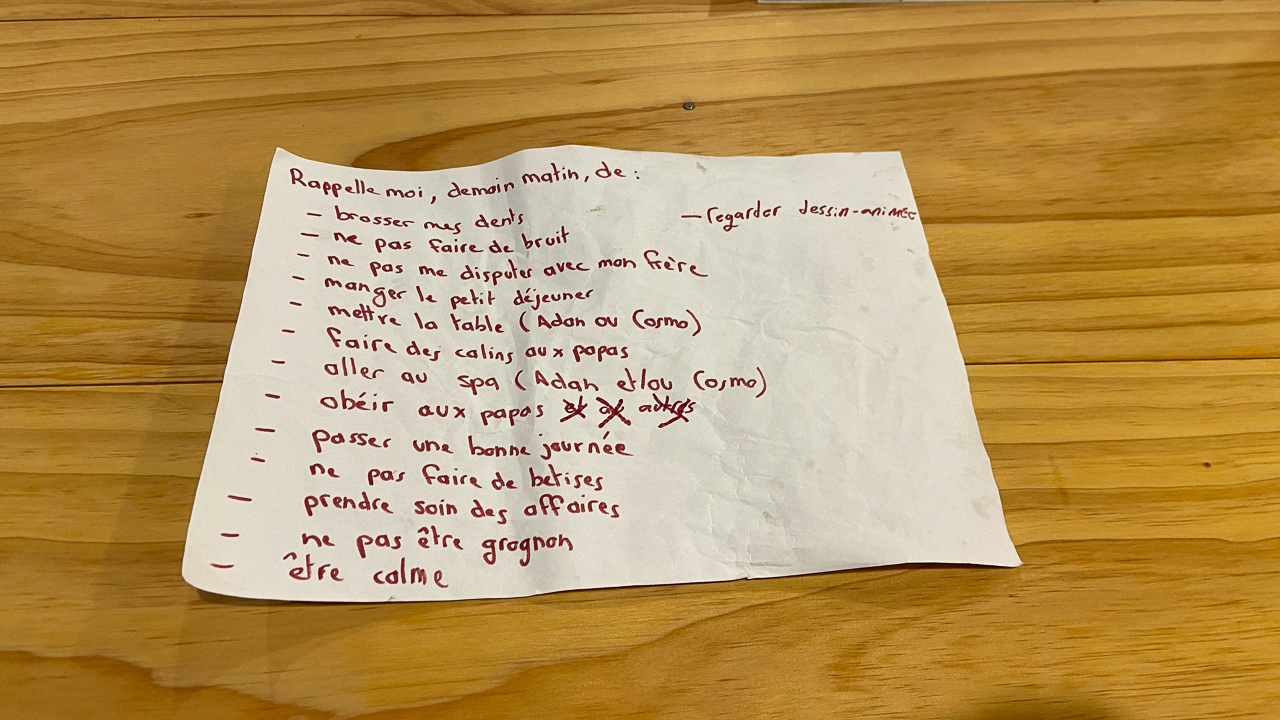 Rappelle moi, demain matin, de :
- brosser mes dents
- ne pas faire de bruit
- ne pas me disputer avec mon frère
- manger le petit déjeuner
- mettre la table (Adan ou Cosmo)
- faire des calins aux papas
- aller au spa (Adan et/ou Cosmo)
- obéir aux papas
- passer une bonne journée
- ne pas faire de betises
- prendre soin des affaires
- ne pas être grognon
- être calme
- regarder dessin-animEE